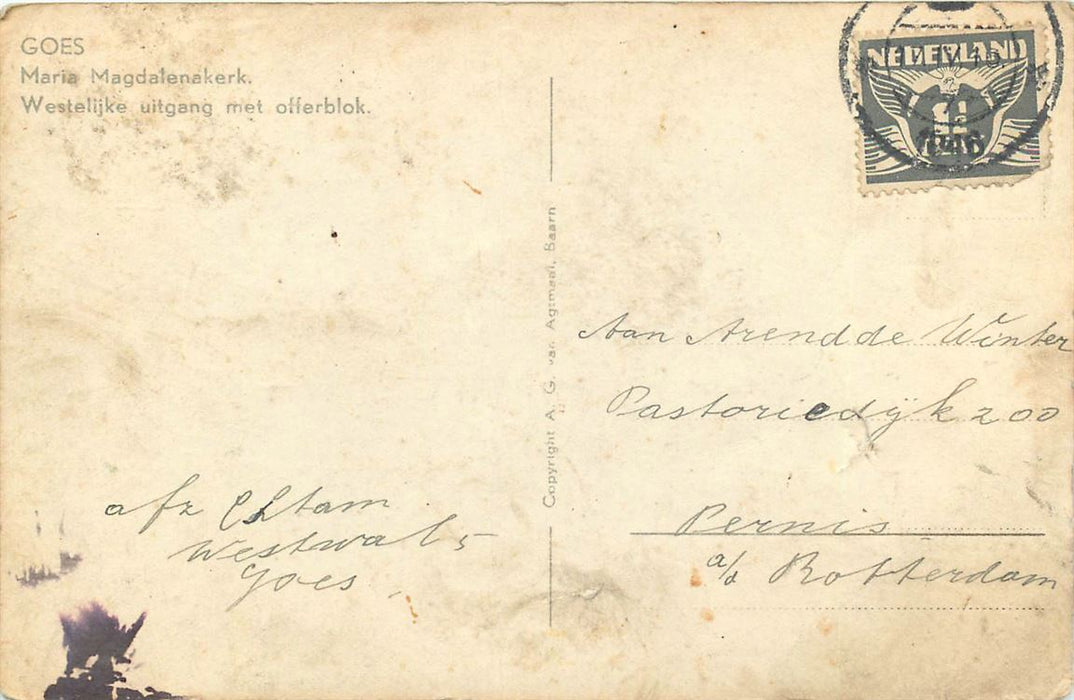 GOES
Maria Magdalenakerk.
Westelijke uitgang met offerblok.
NEDERLAND
1946
Copyright A. G. van Agtmaal, Baarn
Aan Arend de Winter
Pastoriedijk 200
Pernis
a/d Rotterdam
afz Stam
Westwal 5
Goes